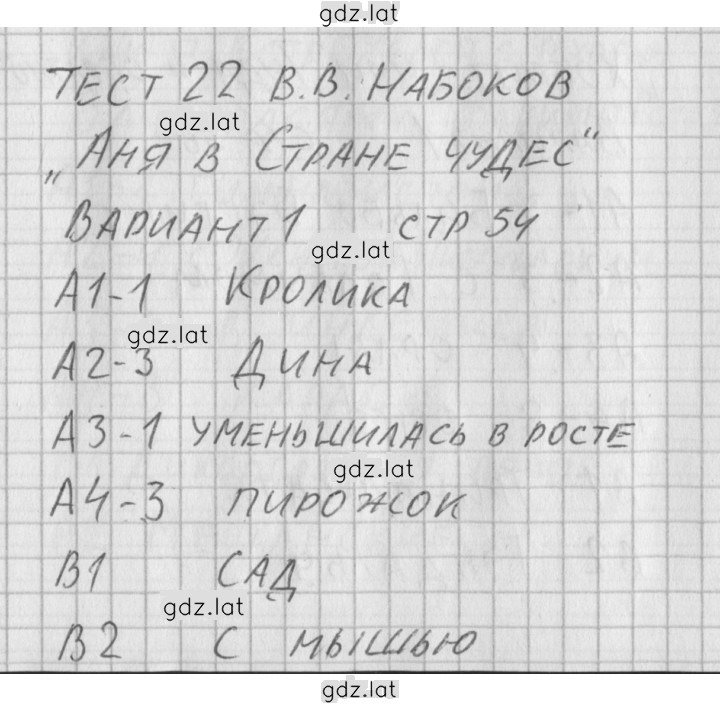 gdz.lat
ТЕСТ 22 В.В. НАБОКОВ
gdz.lat
„АНЯ В СТРАНЕ ЧУДЕС“
ВАРИАНТ 1 СТР 54
gdz.lat
А1-1 КРОЛИКА
gdz.lat
А2-3 ДИНА
А3-1 УМЕНЬШИЛАСЬ В РОСТЕ
gdz.lat
А4-3 ПИРОЖОК
В1 САД
gdz.lat
В2 С МЫШЬЮ
gdz.lat